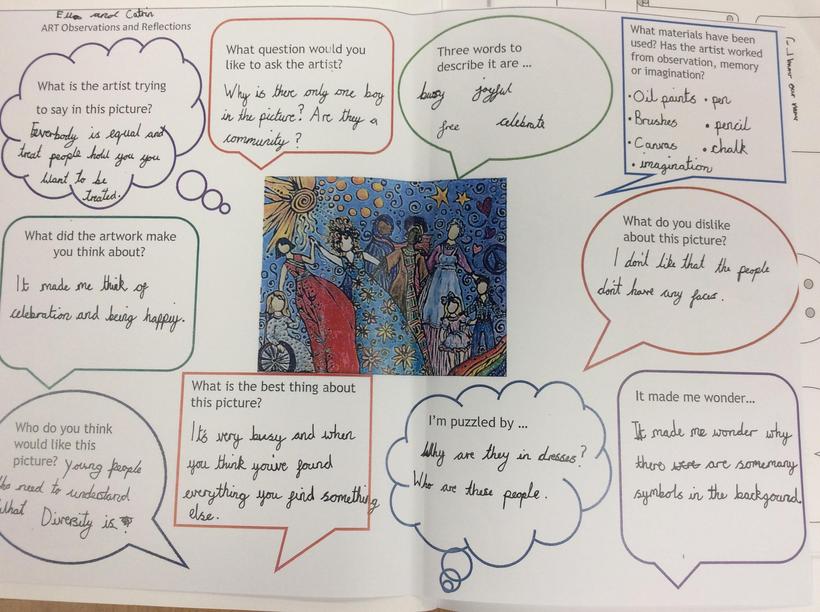 Ella and Catrin
ART Observations and Reflections
What is the artist trying
to say in this picture?
Everbody is equal and
treat people how you you
want to be
treated.
What question would you
like to ask the artist?
Why is there only one boy
in the picture? Are they a
community?
Three words to
describe it are ...
busy joyful
free celebrate
What materials have been
used? Has the artist worked
from observation, memory
or imagination?
• Oil paints • pen
• Brushes • pencil
• Canvas • chalk
• imagination
What did the artwork make
you think about?
It made me think of
celebration and being happy.
What do you dislike
about this picture?
I don't like that the people
don't have any faces.
Who do you think
would like this
picture? Young people
who need to understand
what Diversity is
What is the best thing about
this picture?
It's very busy and when
you think youve found
everything you find something
else.
I'm puzzled by ...
Why are they in dresses?
Who are these people.
It made me wonder...
It made me wonder why
there were are somemany
symbols in the backgound.